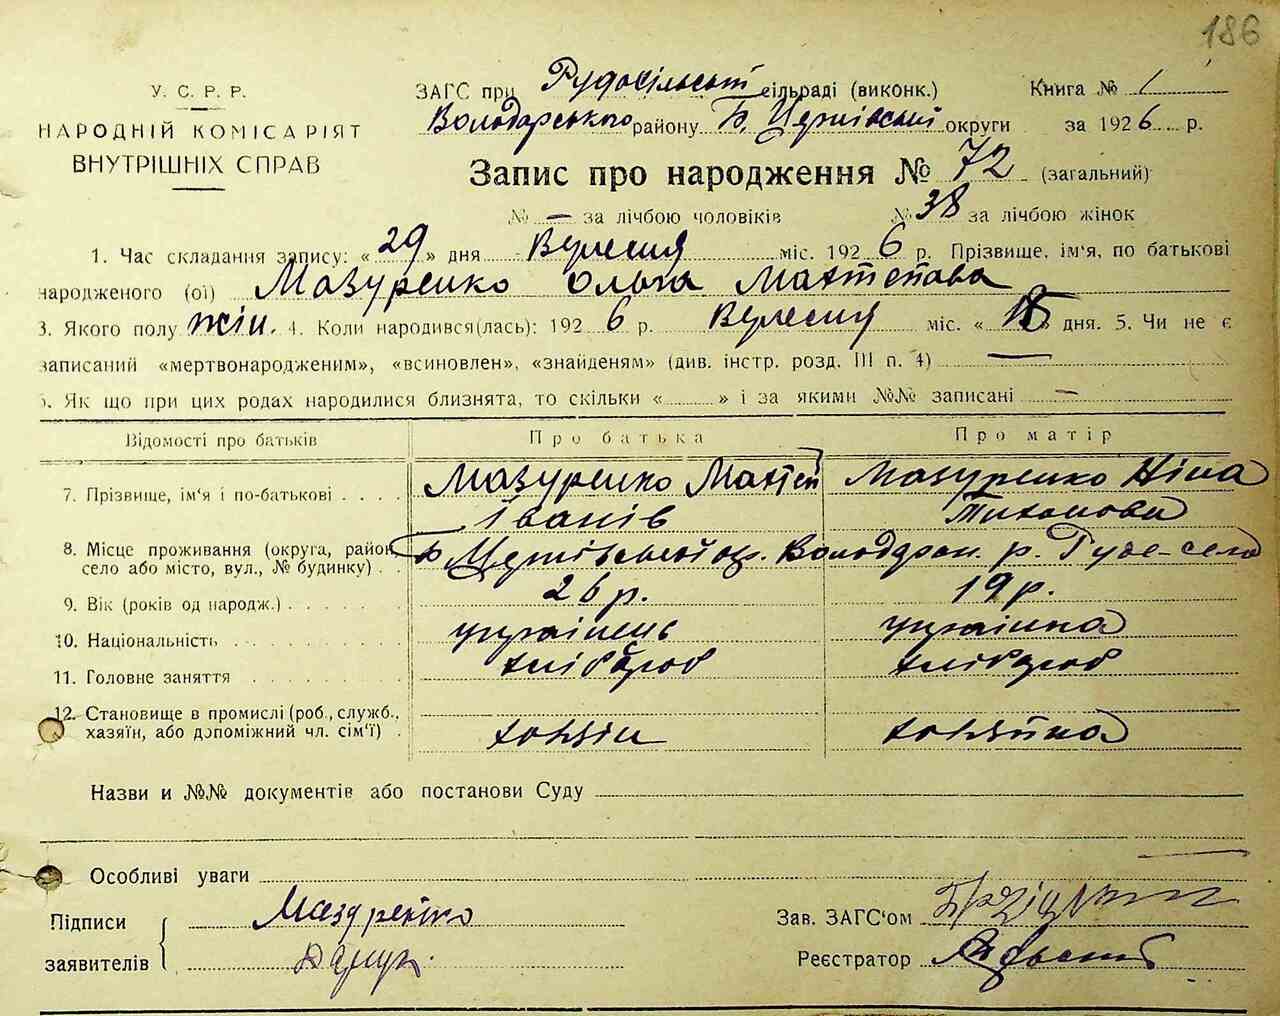 186
У. С. Р. Р.
НАРОДНІЙ КОМІСАРІЯТ
ВНУТРІШНІХ СПРАВ
ЗАГС при Рудосільські сільраді (виконк.) Книга № 1
Володарського району Б. Церківській округи за 1926 р.
Запис про народження № 72 (загальний)
№ — за лічбою чоловіків № 38 за лічбою жінок
1. Час складання запису: «29» дня Вересня міс. 1926 р. Прізвище, ім'я, по батькові
народженого (ої) Мазуренко Ольга Махтеєва
3. Якого полу жін. 4. Коли народився(лась): 1926 р. Вересня міс. «18» дня. 5. Чи не є
записаний «мертвонародженим», «всиновлен», «знайденям» (див. інстр. розд. III п. 4) —
6. Як що при цих родах народилися близнята, то скільки « » і за якими №№ записані —
Відомості про батьків Про батька Про матір
7. Прізвище, ім'я і по-батькові Мазуренко Махтей Мазуренко Ніна
Іванів Тихонова
8. Місце проживання (округа, район, село або місто, вул., № будинку) Б Церківської окр. Володарськ. р. Руде-село
9. Вік (років од народж.) 26 р. 19 р.
10. Національність українець українка
11. Головне заняття хлібороб хлібороб
12. Становище в промислі (роб., служб.,
хазяїн, або допоміжний чл. сім'ї) хазяїн хазяйка
Назви и №№ документів або постанови Суду
Особливі уваги
Підписи Мазуренко Зав. ЗАГС'ом
заявителів Реєстратор